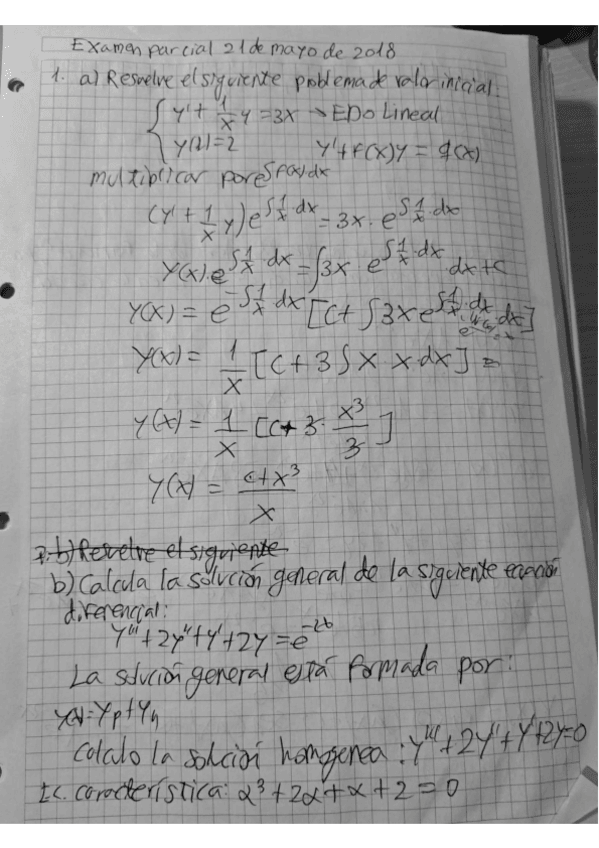 Examen parcial 21 de mayo de 2018
1. a) Resuelve el siguiente problema de valor inicial:
{ y' + 1/x y = 3x → EDO Lineal
y(1)=2 y'+f(x)y = g(x)
multiplicar por e^∫f(x)dx
(y' + 1/x y) e^∫1/x dx = 3x · e^∫1/x dx
y(x) · e^∫1/x dx = ∫3x e^∫1/x dx · dx + c
y(x) = e^-∫1/x dx [c + ∫3x e^∫1/x dx · dx]
y(x) = 1/x [c + 3∫x · x · dx] =
y(x) = 1/x [c + 3 · x³/3]
y(x) = c+x³/x
b) Resuelve el siguiente
b) Calcula la solución general de la siguiente ecuación
diferencial:
y''' + 2y'' + y' + 2y = e^-2t
La solución general está formada por:
y(x) = yp + yh
Calculo la solución homogenea: y''' + 2y' + y' + 2y = 0
Ec. característica: α³ + 2α + α + 2 = 0